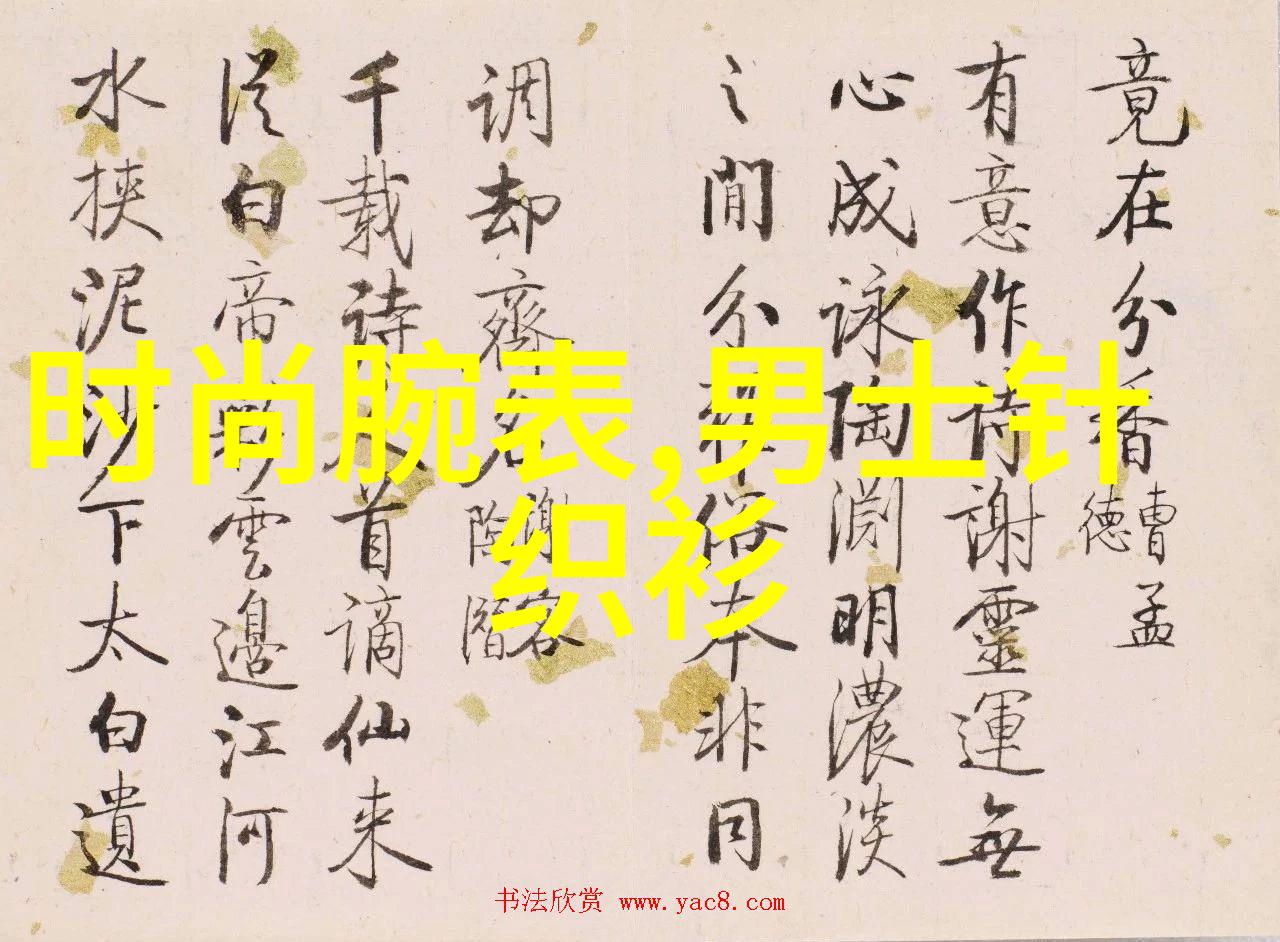 竟在分香
曹孟
德
有意作詩謝靈運無
心成詠陶淵明濃淡
之間分雅俗本非同
調却齊名
謝客
千載詩人首謫仙来
從白帝彩雲邊江河
水挾泥沙下太白遺
时尚腕表,男士针
织衫
书法欣赏 www.yac8.com